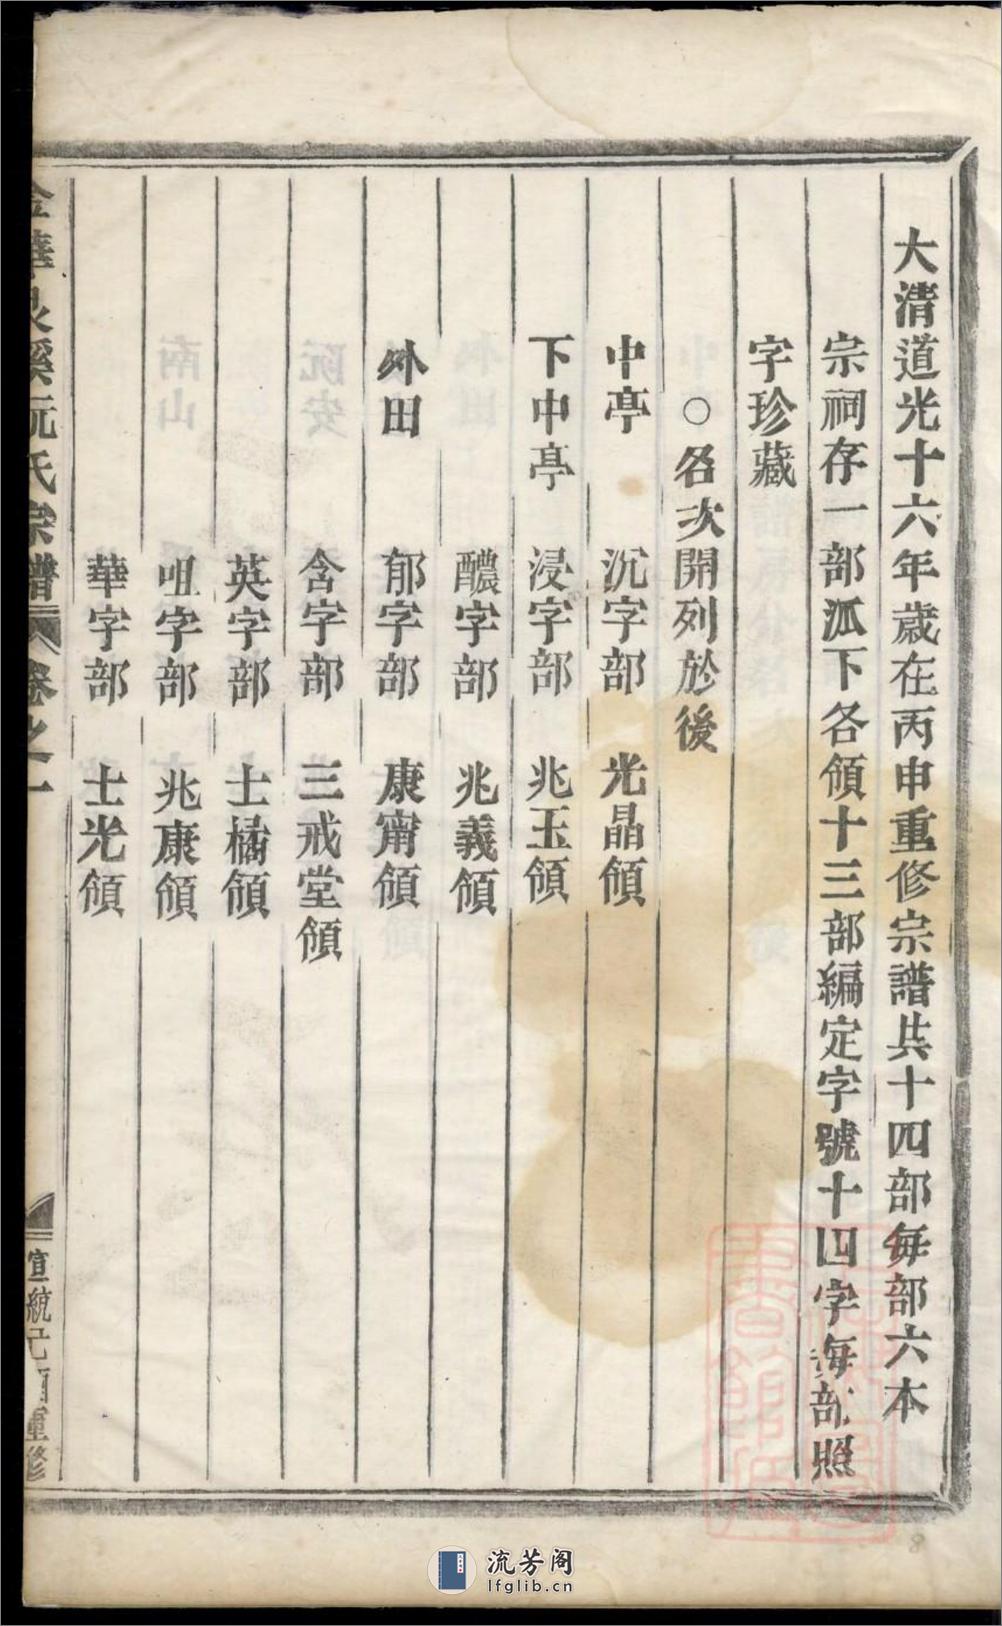 大清道光十六年歲在丙申重修宗譜共十四部每部六本
宗祠存一部派下各領十三部編定字號十四字每部照
字珍藏
○名次開列於後
中亭 沉字部 光晶領
下中亭 浸字部 兆玉領
醲字部 兆義領
外田 郁字部 康甯領
含字部 三戒堂領
英字部 士橘領
咀字部 兆康領
華字部 士光領
金華 溪阮氏宗譜 卷之一 宣統己酉重修
流芳阁
lfglib.cn
8